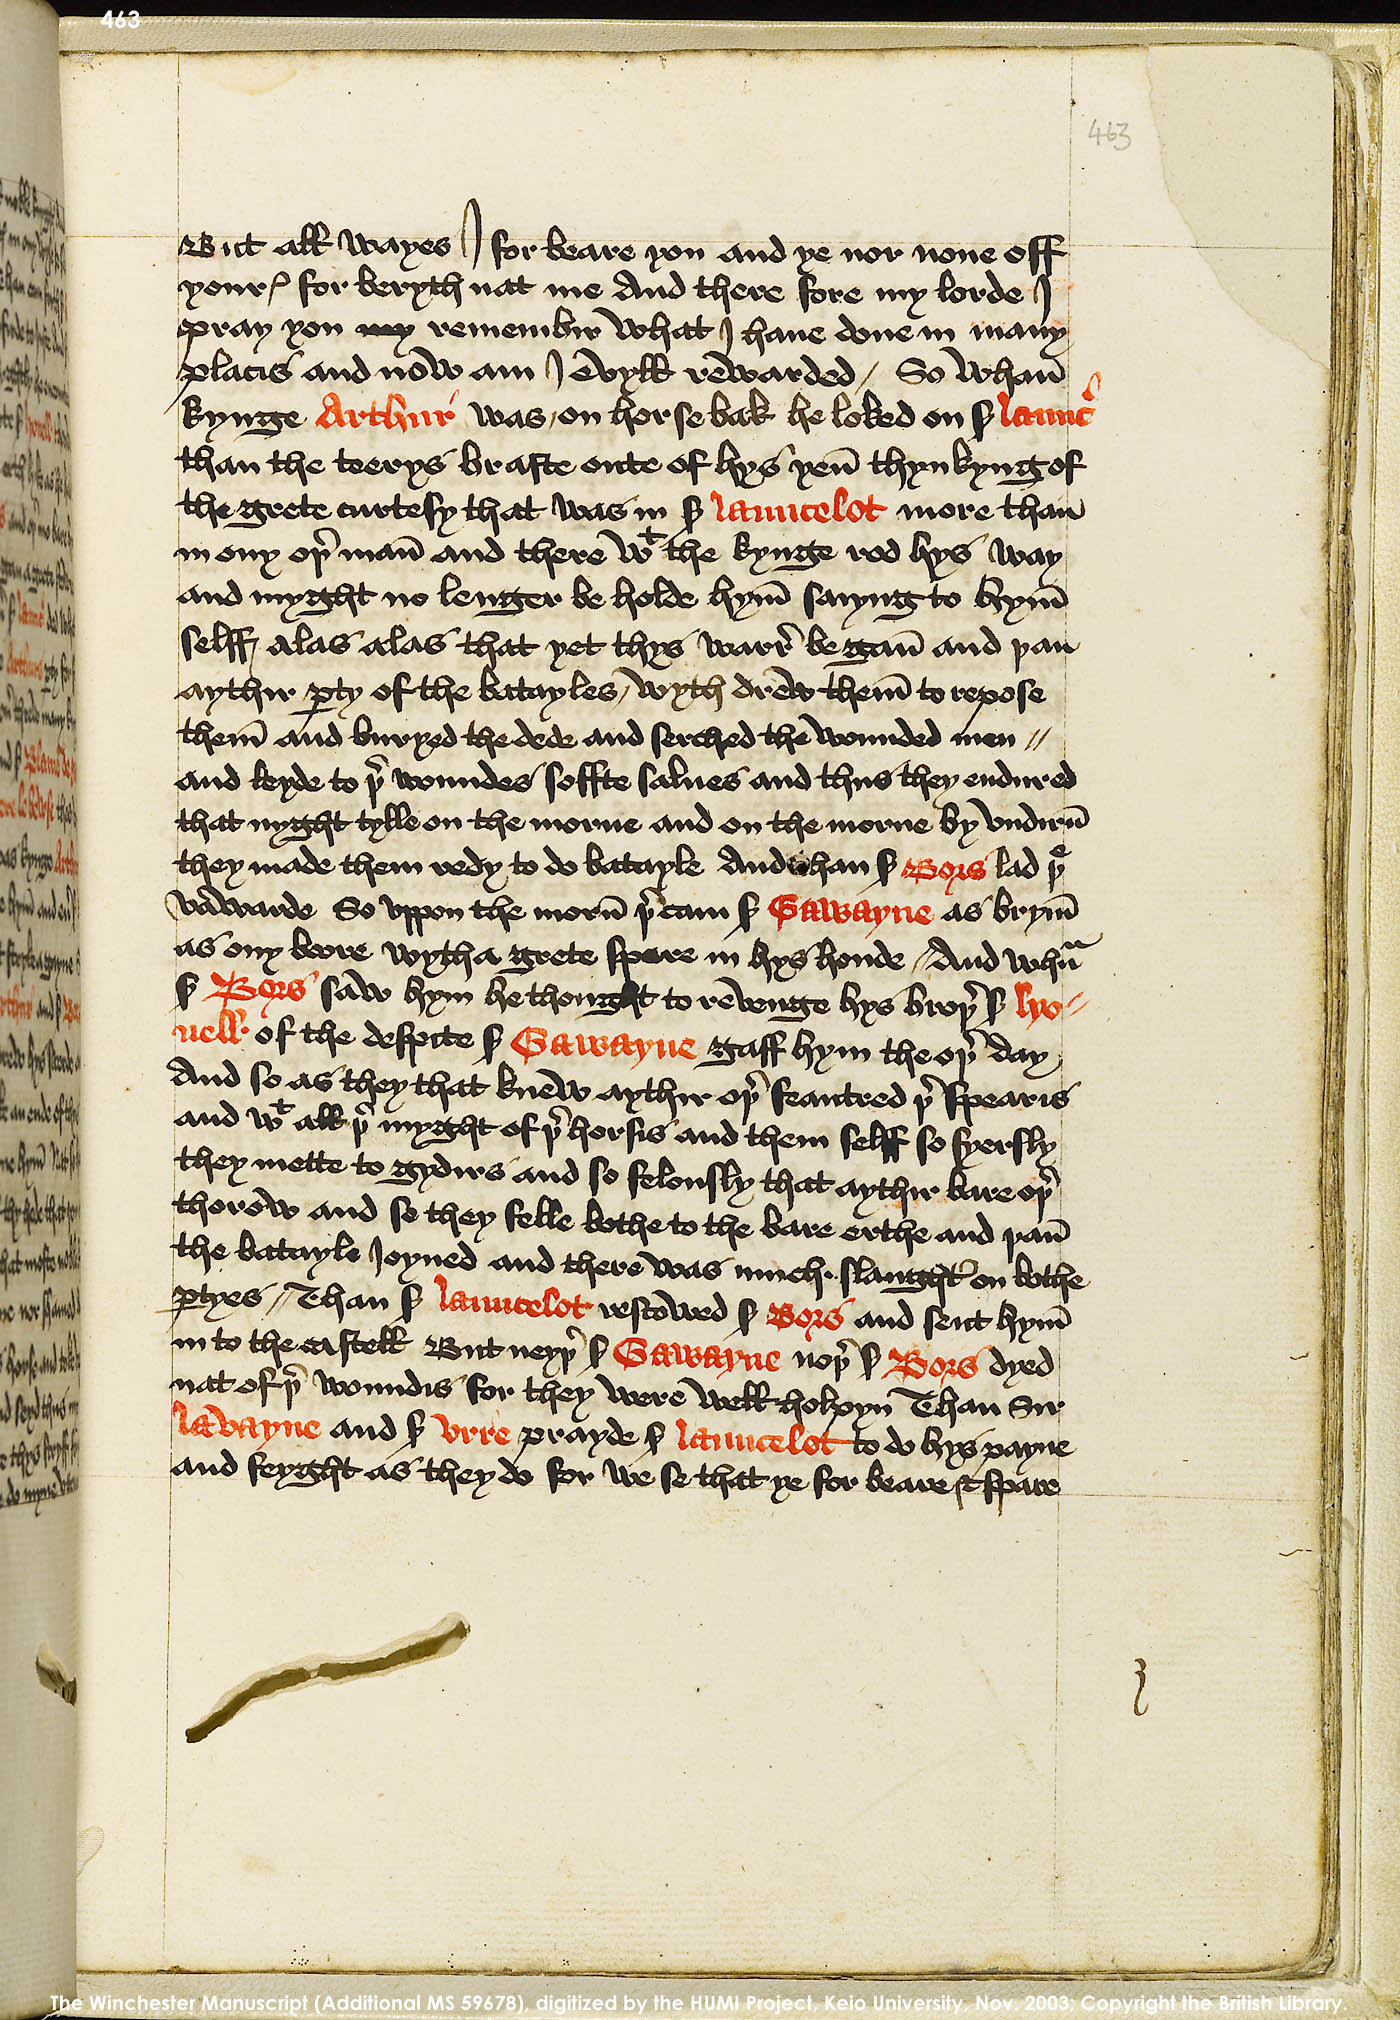 463
463
But all wayes I for beare you and ye nor none off
your for beryth nat me And there fore my lorde I
pray you my remembir what I haue done in many
placis and now am I evyll rewarded / So whan̄
kynge Arthur was / on horse bak he loked on ẜ launc̉
than the teerys brafte oute of hys yen̄ thynkyng of
the grete curtesy that was in ẜ launcelot more than
in ony oþ̉ man̄ and there wᵗ the kynge rod hys way
and myght no lenger be holde hym̄ saiyng to hym̄
selff / alas alas that yet thys warr̉ be gan̄ and þan
aythir ꝑty of the batayles / wyth drew them̄ to repose
them̄ and buryed the dede and serched the wounded men //
and leyde to þ̉ woundes soffte salues and thus they endured
that nyght tylle on the morne and on the morne by vndirn̄
they made them redy to do batayle And than ẜ Bors lad þᵉ
vawarde So vppon the morn̄ þ̉ cam ẜ Gawayne as brym̄
as ony boore wyth a grete spere in hys honde // And whan̄
ẜ Bors saw hym he thought to revenge hys broþ̉ ẜ lyo-
nell of the despite ẜ Gawayne gaff hym the oþ̉ day
And so as they that knew aythir oþ̉ feautred þ̉ spearis
and wᵗ all þ̉ myght of þ̉ horsis and them selff so fyersly
they mette to gydirs and so felonsly that aythir bare oþ̉
thorow and so they felle bothe to the bare erthe and þan̄
the batayle Joyned and there was much slaught̉ on bothe
ꝑtyes // Than ẜ launcelot rescowed ẜ Bors and sent hym̄
in to the castell But neyþ̉ ẜ Gawayne noþ̉ ẜ Bors dyed
nat of þ̉ woundis for they were well holpyn Than Sir
lavayne and ẜ vrre prayde ẜ launcelot to do hys payne
and feyght as they do for we se that ye for beare & spare
The Winchester Manuscript (Additional MS 59678), digitized by the HUMI Project, Keio University, Nov. 2003; Copyright the British Library.